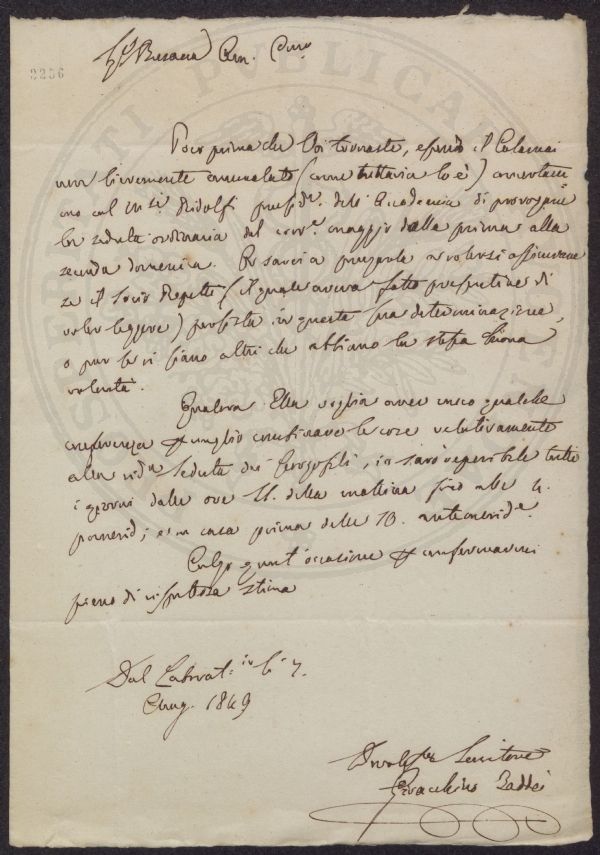 2256
Poco prima che Voi tornaste, essendo il Calamai
non lievemente ammalato (come tuttavia lo è)
col Ridolfi presid.e dell'Accademia di
la seduta ordinaria del corr.e maggio dalla prima alla
seconda domenica. assicurare
se il Socio Repetti (il quale aveva fatto di
voler leggere) persista in questa sua determinazione,
o pur se vi siano altri che abbiano la stessa buona
volontà.
Qualora Ella voglia aver meco qualche
conferenza p meglio combinare le cose relativamente
alla sud.a Seduta dei Georgofili, io sarò reperibile tutti
i giorni dalle ore 11. della mattina fino alle 4.
pomerid; e in casa prima delle 10. antemerid.e
Colgo quest'occasione p confermarmi
pieno di rispettosa stima
Dal Laborat.io li 7.
1849
Servitore
Gioacchino Taddei